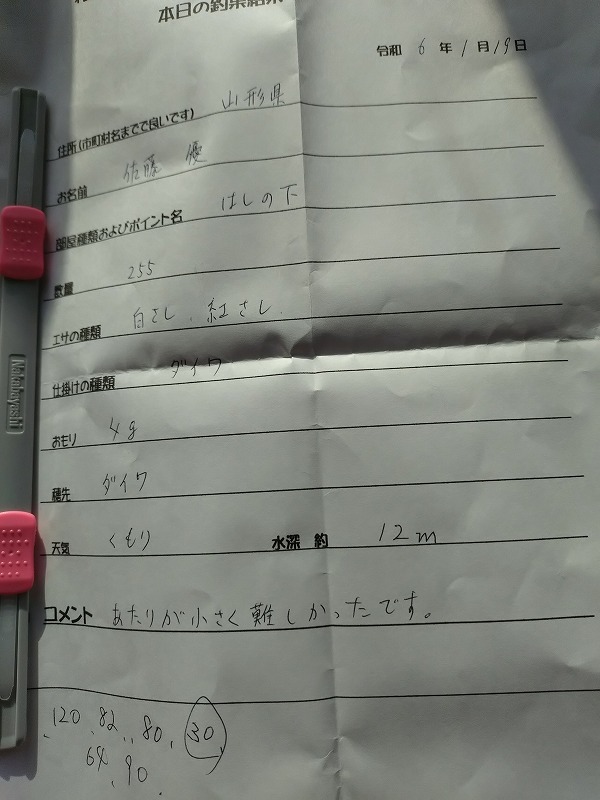 本日の釣果結果
令和 6 年 1 月 19 日
住所(市町村名までで良いです) 山形県
お名前 佐藤 優
部屋種類およびポイント名 はしの下
数量 255
エサの種類 白さし、紅さし
仕掛けの種類 ダイワ
おもり 4g
穂先 ダイワ
天気 くもり 水深 約 12m
コメント あたりが小さく難しかったです。
120、82、80、30
64、90
Nakabayashi